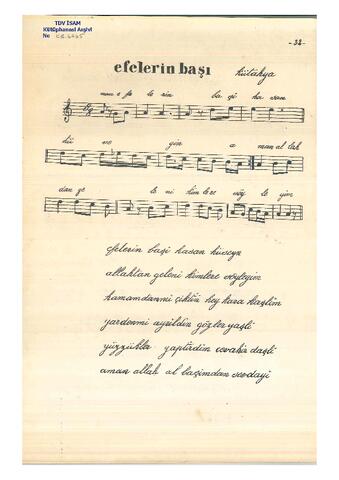 TDV İSAM
Kütüphanesi Arşivi
No
- 32 -
efelerin başı
kütahya
le rin ba şi ha san
hü se yin a man al lah
dan ge le ni kim lere söy le yim
efelerin başi hasan hüseyn
allahtan geleni kimlere söyleyim
hamamdanmi çiktin hey kara kaşlim
yardanmi ayrildin gözler yaşli
yüzükler yaptirdim cevahir daşli
aman allah al başimdan sevdayi